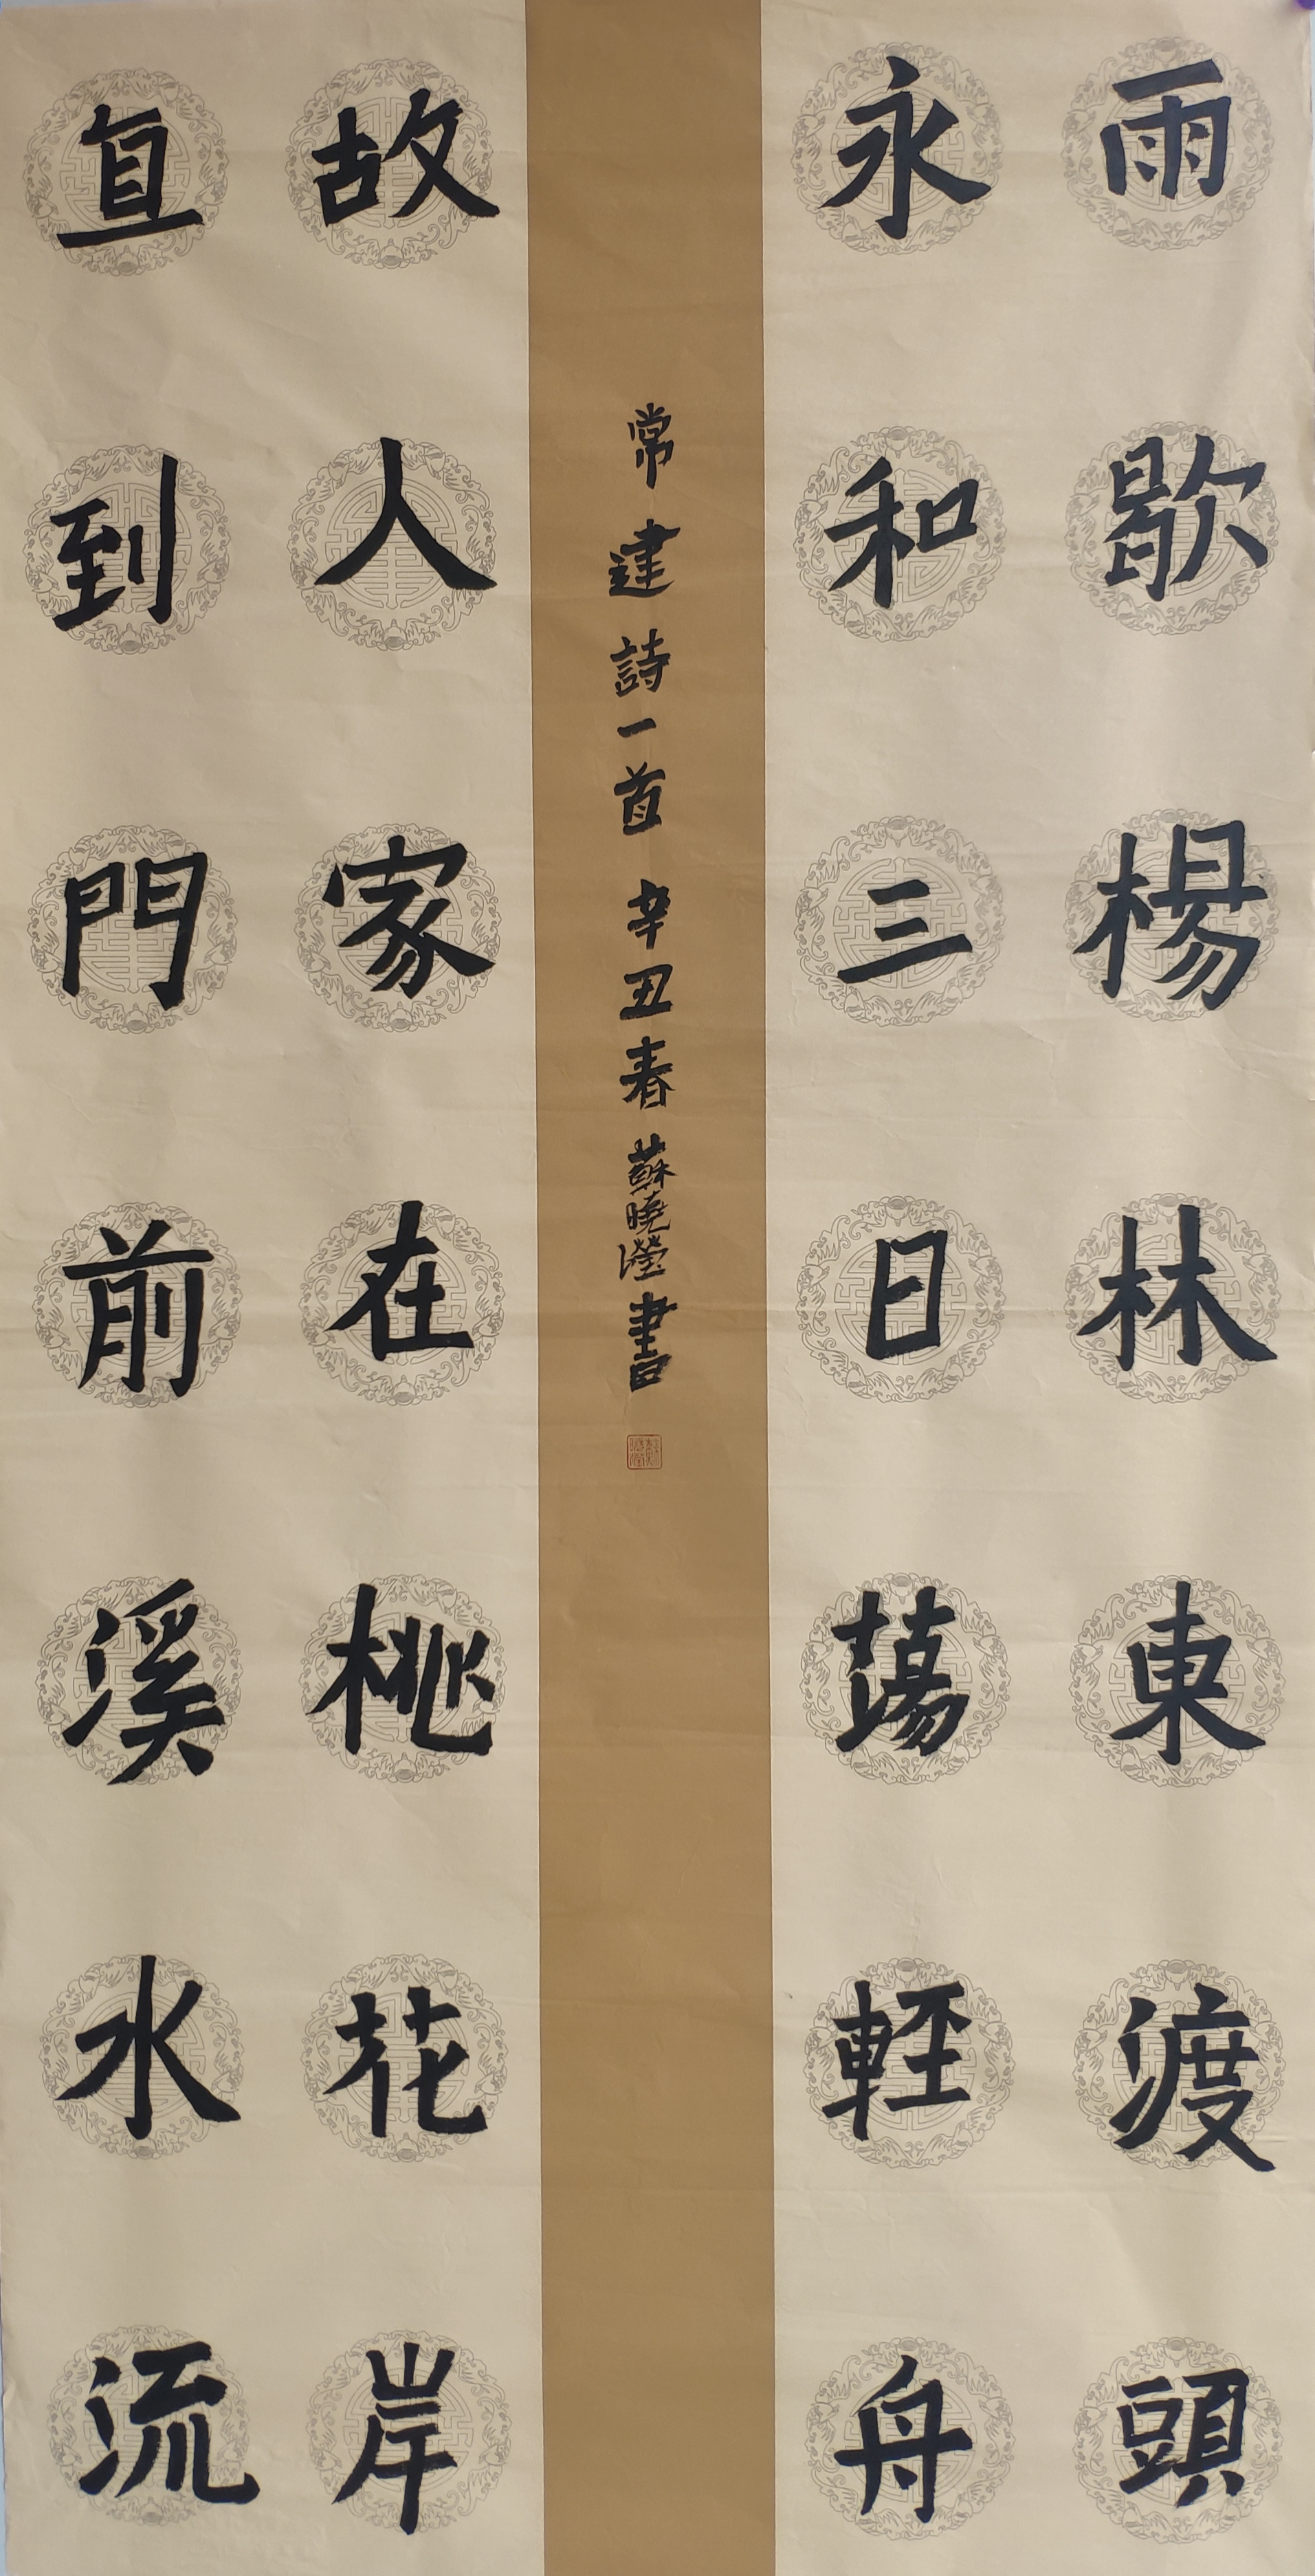 雨歇楊林東渡頭
永和三日蕩輕舟
故人家在桃花岸
直到門前溪水流
常建詩一首 辛丑春 蘇曉瀅書